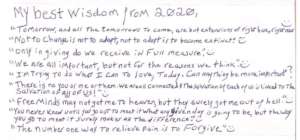 My best Wisdom from 2020,
"Tomorrow, and all the tomorrows to come, are but extensions of right here, right now"
"Not to change is not to adapt, not to adapt is to become extinct"
"Only in giving do we receive in Full measure"
"We are all important, but not for the reasons we think"
"I'm Trying to do what I can To Love, Today. Can anything be more important?
"There is no you or me or them. We are all connected. The salvation of each of us is linked To The
Salvation of all of us!"
"Free Minds may not get me to heaven, but they surely get me out of hell."
"You never know until you get to meet it what any given day is going to be, but the way
you go to meet it surely makes all the difference."
"The number one way to relieve pain is to Forgive"